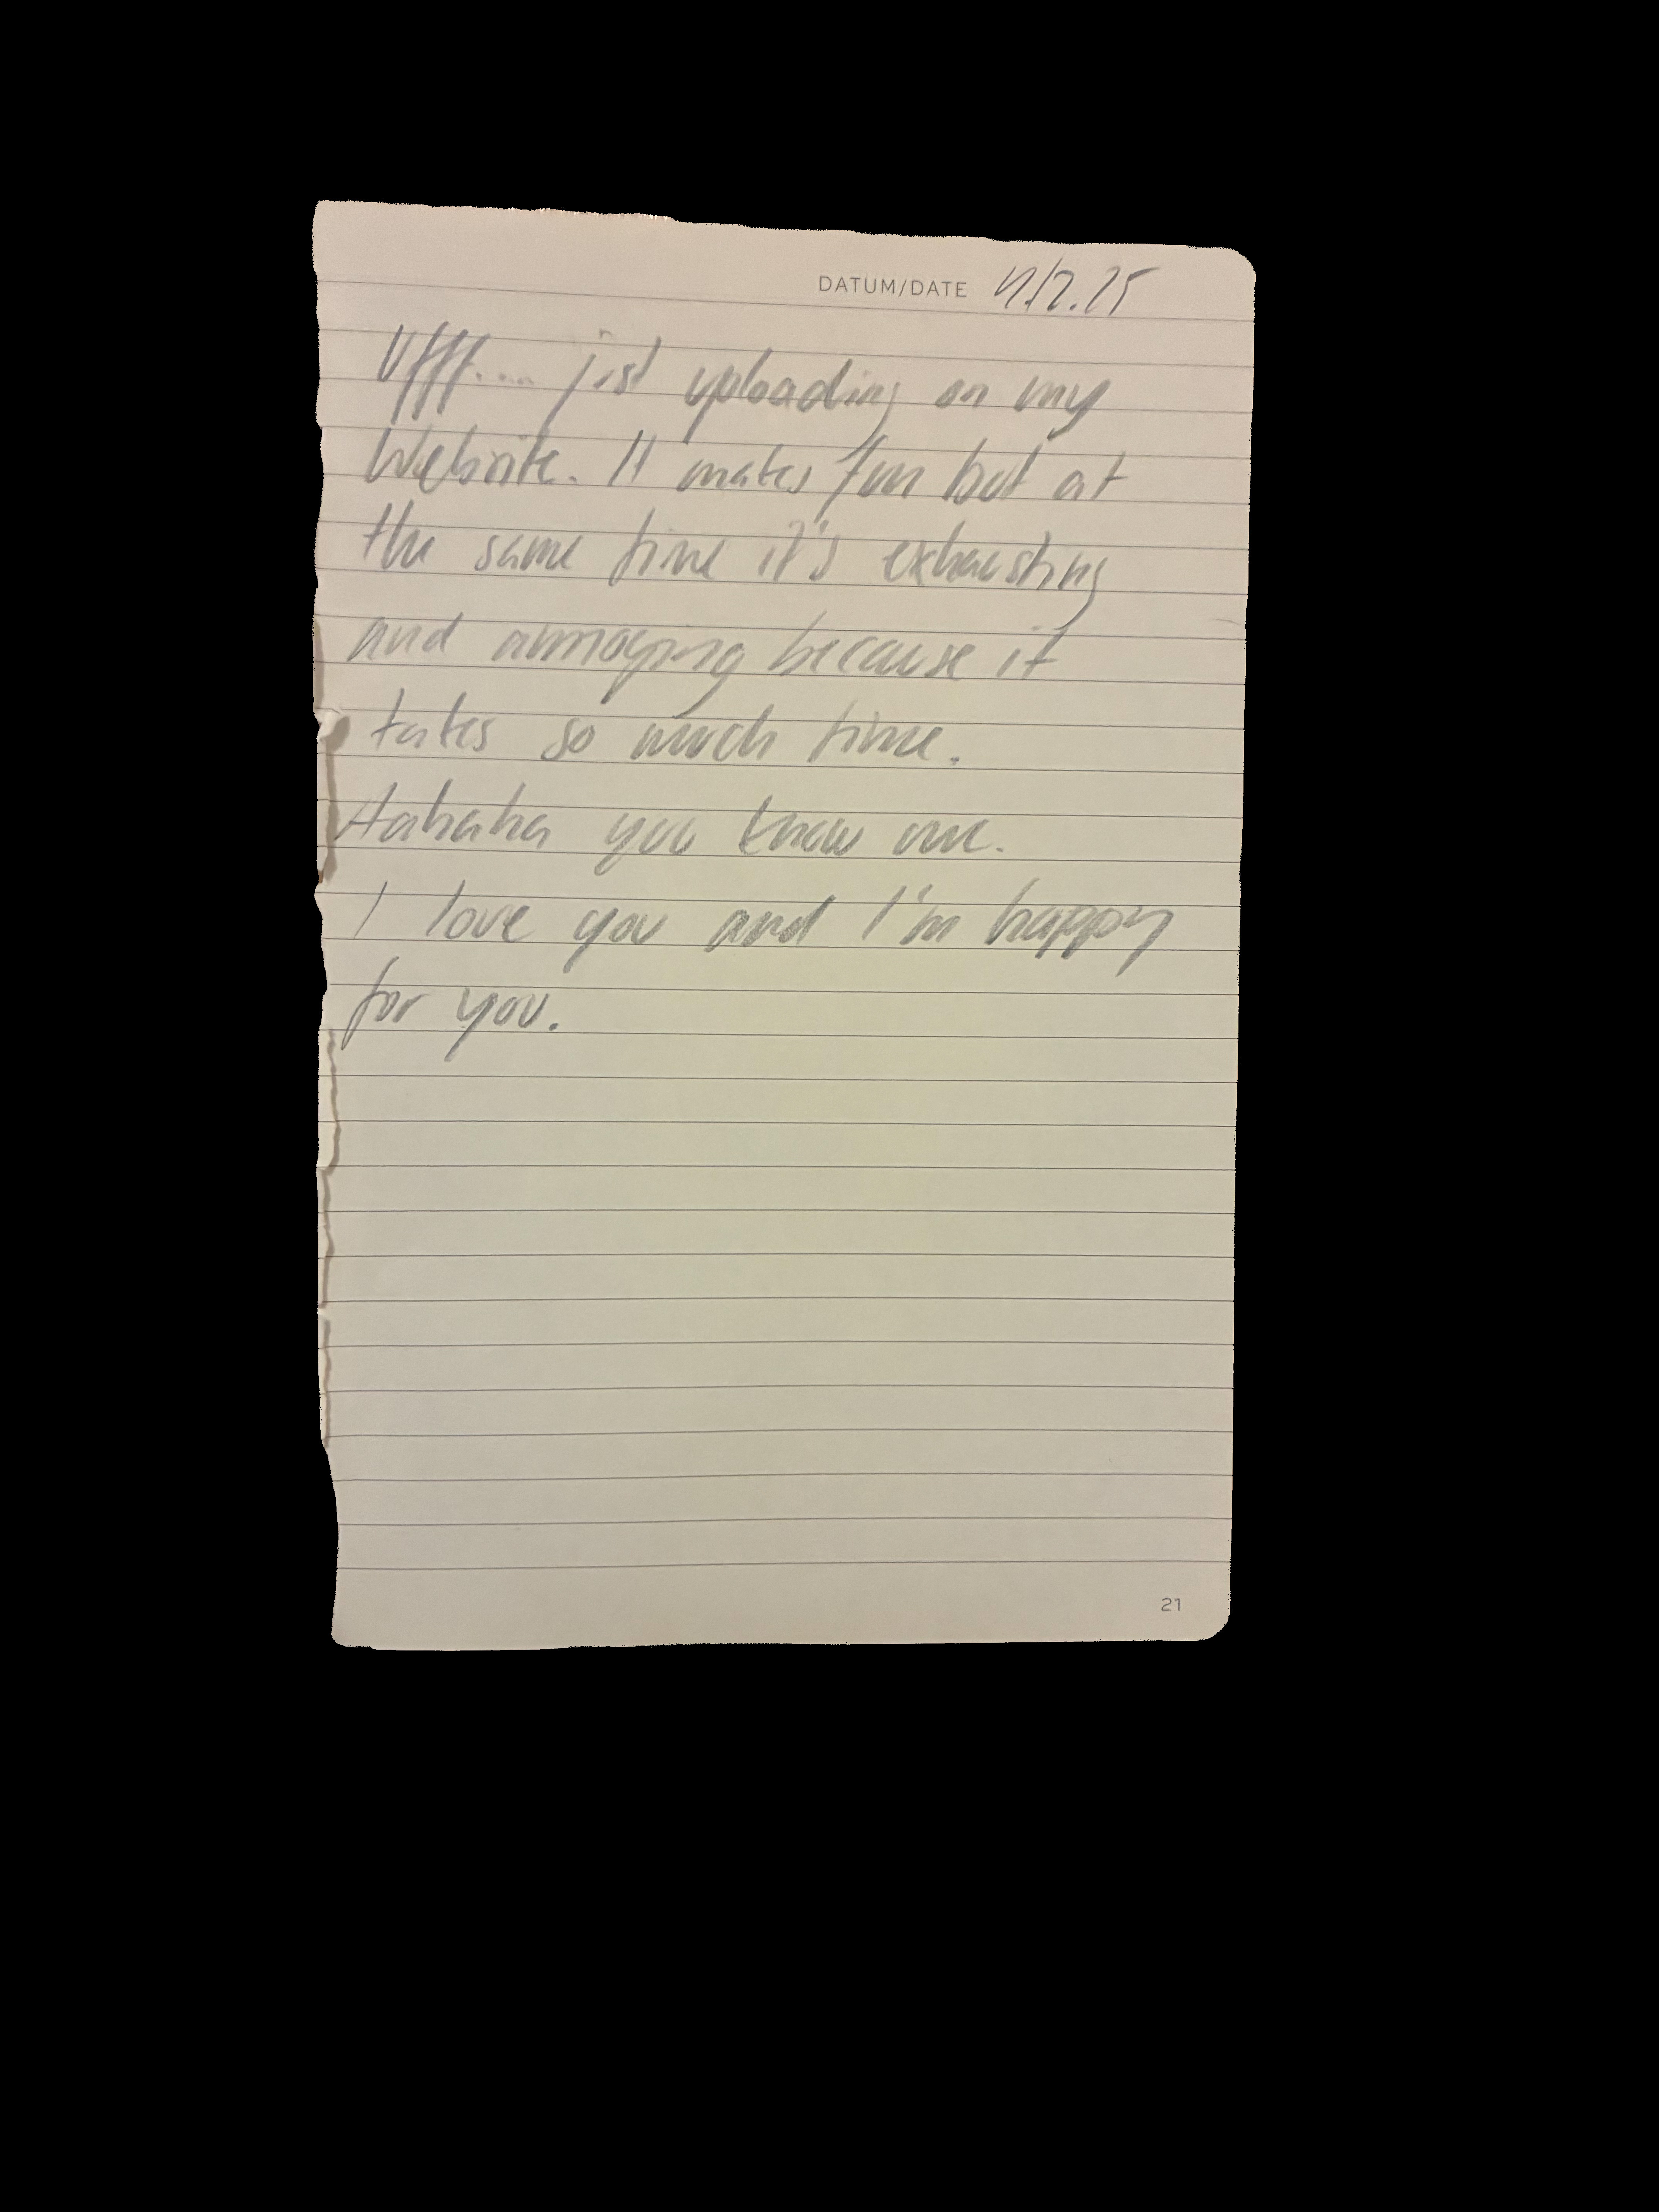 DATUM/DATE
Ufff.... just uploading on my
Website. It makes fun but at
the same time it's exhausting
and annoying because it
takes so much time.
Hahaha you know me.
I love you and I'm happy
for you.
21